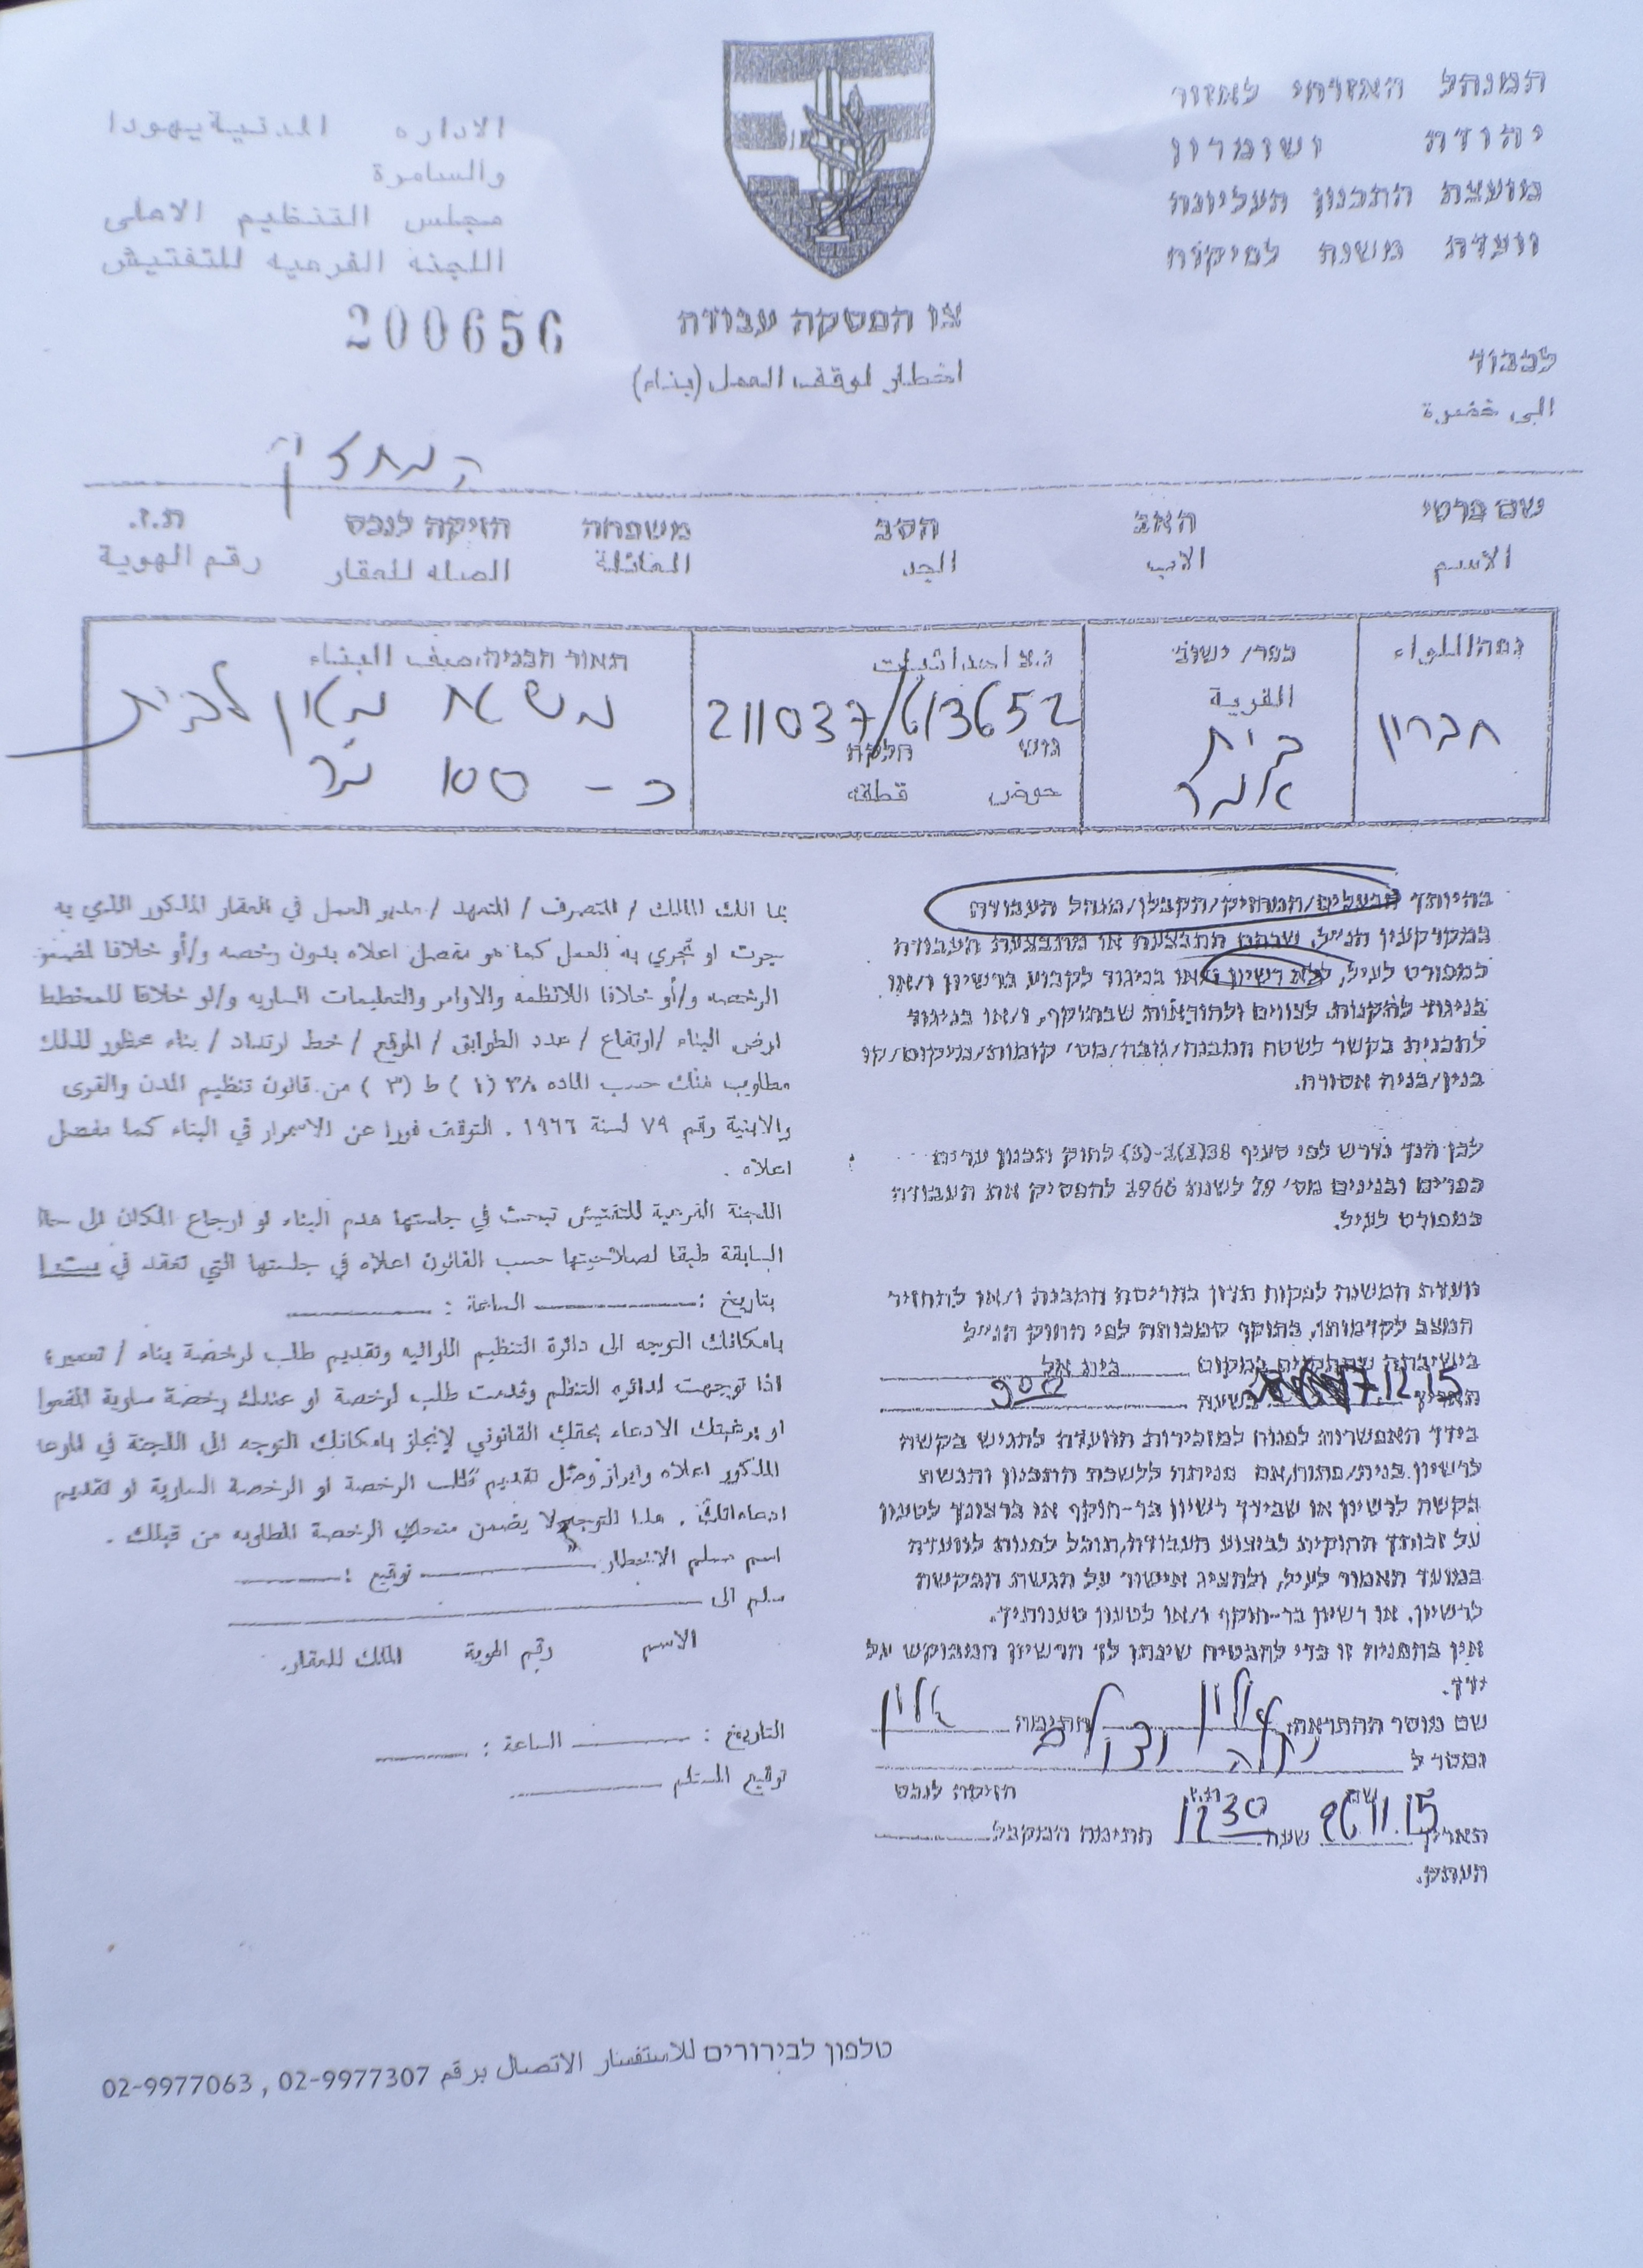 המנהל האזרחי לאזור
יהודה ושומרון
מועצת התכנון העליונה
וועדת משנה לפיקוח
الاداره المدنية يهودا
والسامرة
مجلس التنظيم الاعلى
اللجنة الفرعيه للتفتيش
200656
צו הפסקה עבודה
اخطار لوقف العمل (بناء)
לכבוד
الى حضرة
המחזיק
שם פרטי האב הסב משפחה הזיקה לנכס ת.ז.
الاسم الاب الجد العائلة الصله للعقار رقم الهوية
נפה/اللواء
חברון
כפר/ ישוב
القرية
בית
אומר
נ.צ احداثيات
211037/613652
גוש חלקה
حوض قطعه
תאור הבניה/صيف البناء
משאח מאון לבית
כ- 100 מ"ר
בהיותך הבעלים/המחזיק/הקבלן/מנהל העבודה
במקרקעין הנ״ל, שבהם התבצעה או מתבצעת העבודה
כמפורט לעיל, ללא רשיון ו/או בניגוד לקבוע ברשיון ו/או
בניגוד לתקנות, לצווים ולהוראות שבתוקף, ו/או בניגוד
לתכנית בקשר לשטח המבנה/גובה/מס׳ קומות/מיקום/קו
בנין/בניה אסורה.
לכן הנך נדרש לפי סעיף 38(1)ב-(3) לחוק תכנון ערים
כפרים ובנינים מס׳ 79 לשנת 1966 להפסיק את העבודה
כמפורט לעיל.
וועדת המשנה לפקוח תדון בהריסת המבנה ו/או להחזיר
המצב לקדמותו, בתוקף סמכותה לפי החוק הנ״ל
בישיבתה שתתקיים במקום בית אל
תאריך 17.12.15 בשעה 9:00
בידך האפשרות לפנות למזכירות הוועדה להגיש בקשה
לרשיון בניה/פתוח, אם פנית ללשכת התכנון והגשת
בקשה לרשיון או שבידך רשיון בר-תוקף או ברצונך לטעון
על זכותך החוקית לביצוע העבודה, תוכל לפנות לוועדה
במועד האמור לעיל, ולהציג אישור על הגשת הבקשה
לרשיון, או רשיון בר-תוקף ו/או לטעון טענותיך.
אין בהפניה זו כדי להבטיח שינתן לך הרשיון המבוקש על
ידך.
שם מוסר ההתראה: חתימה
נמסר ל
שם ת.ז. הזיקה לנכס
תאריך 26.11.15 שעה 12:30 חתימת המקבל
העתק.
بما انك المالك / المتصرف / المتعهد / مدير العمل في العقار المذكور الذي به
جرت او تجري به العمل كما هو مفصل اعلاه بدون رخصه و/أو خلافا لمضمون
الرخصه و/أو خلافا للانظمه والاوامر والتعليمات الساريه و/او خلافا للمخطط
ارض البناء / ارتفاع / عدد الطوابق / الموقع / خط ارتداد / بناء محظور لذلك
مطلوب منك حسب الماده ٣٨ (١) ط (٣) من قانون تنظيم المدن والقرى
والابنية رقم ٧٩ لسنة ١٩٦٦ . التوقف فورا عن الاستمرار في البناء كما مفصل
اعلاه .
اللجنة الفرعية للتفتيش تبحث في جلستها هدم البناء او ارجاع المكان الى حالة
السابقة طبقا لصلاحيتها حسب القانون اعلاه في جلستها التي تعقد في
بتاريخ : الساعة :
بامكانك التوجه الى دائرة التنظيم اللوائيه وتقديم طلب لرخصة بناء / تعمير؛
اذا توجهت لدائره التنظيم وقدمت طلب لرخصة او عندك رخصة سارية المفعول
او برغبتك الادعاء بحقك القانوني لإنجاز بامكانك التوجه الى اللجنة في الموعد
المذكور اعلاه وابراز وصل تقديم طلب الرخصة او الرخصة السارية او تقديم
ادعاءاتك . هذا التوجه لا يضمن منحك الرخصة المطلوبه من قبلك .
اسم مسلم الاخطار توقيع :
سلم الى
الاسم رقم الهوية المالك للعقار.
التاريخ : الساعة :
توقيع المستلم
טלפון לבירורים للاستفسار الاتصال برقم 02-9977307 , 02-9977063